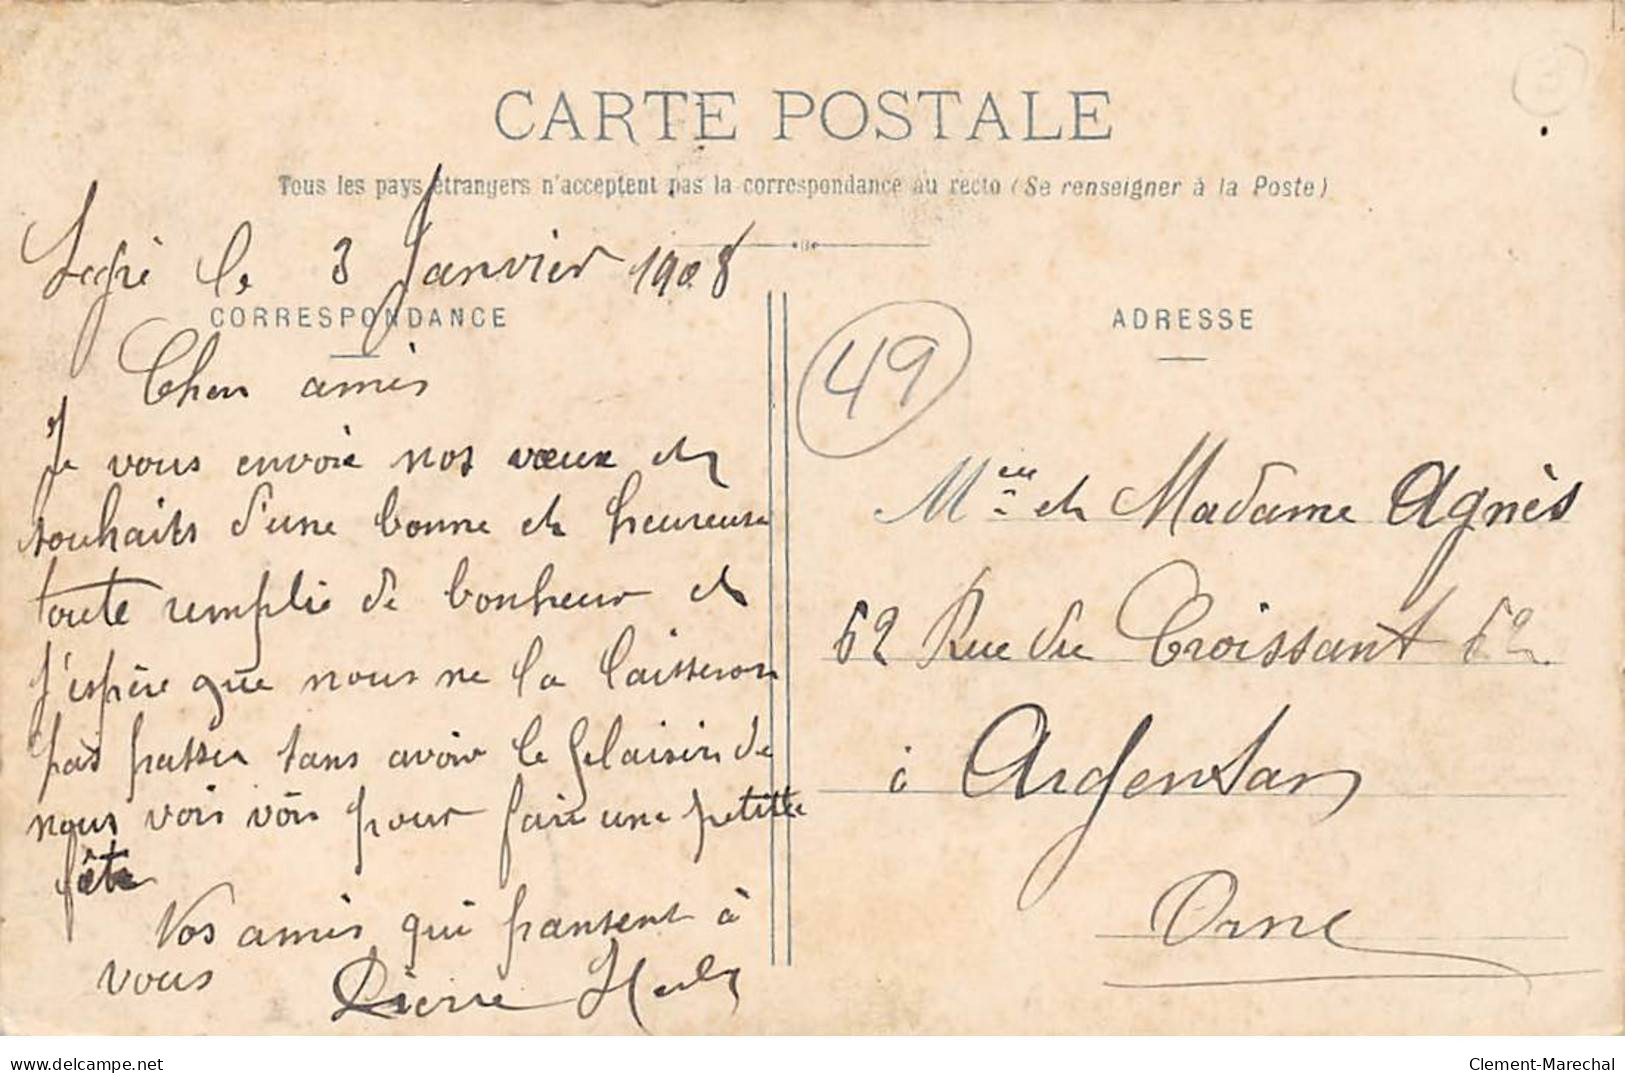 CARTE POSTALE
Tous les pays étrangers n'acceptent pas la correspondance au recto (Se renseigner à la Poste)
Segré le 3 Janvier 1908
CORRESPONDANCE
Cher amis
Je vous envoie nos vœux et
souhaits d'une bonne et heureuse
toute remplie de bonheur et
j'espère que nous ne la laisseron
pas passer sans avoir le plaisir de
nous voir pour faire une petitte
fête
Vos amis qui pansent à
vous Pierre
49
ADRESSE
et Madame Agnès
62 Rue du Croissant 62
à Argentan
Orne
delcampe.net
Clement-Marechal